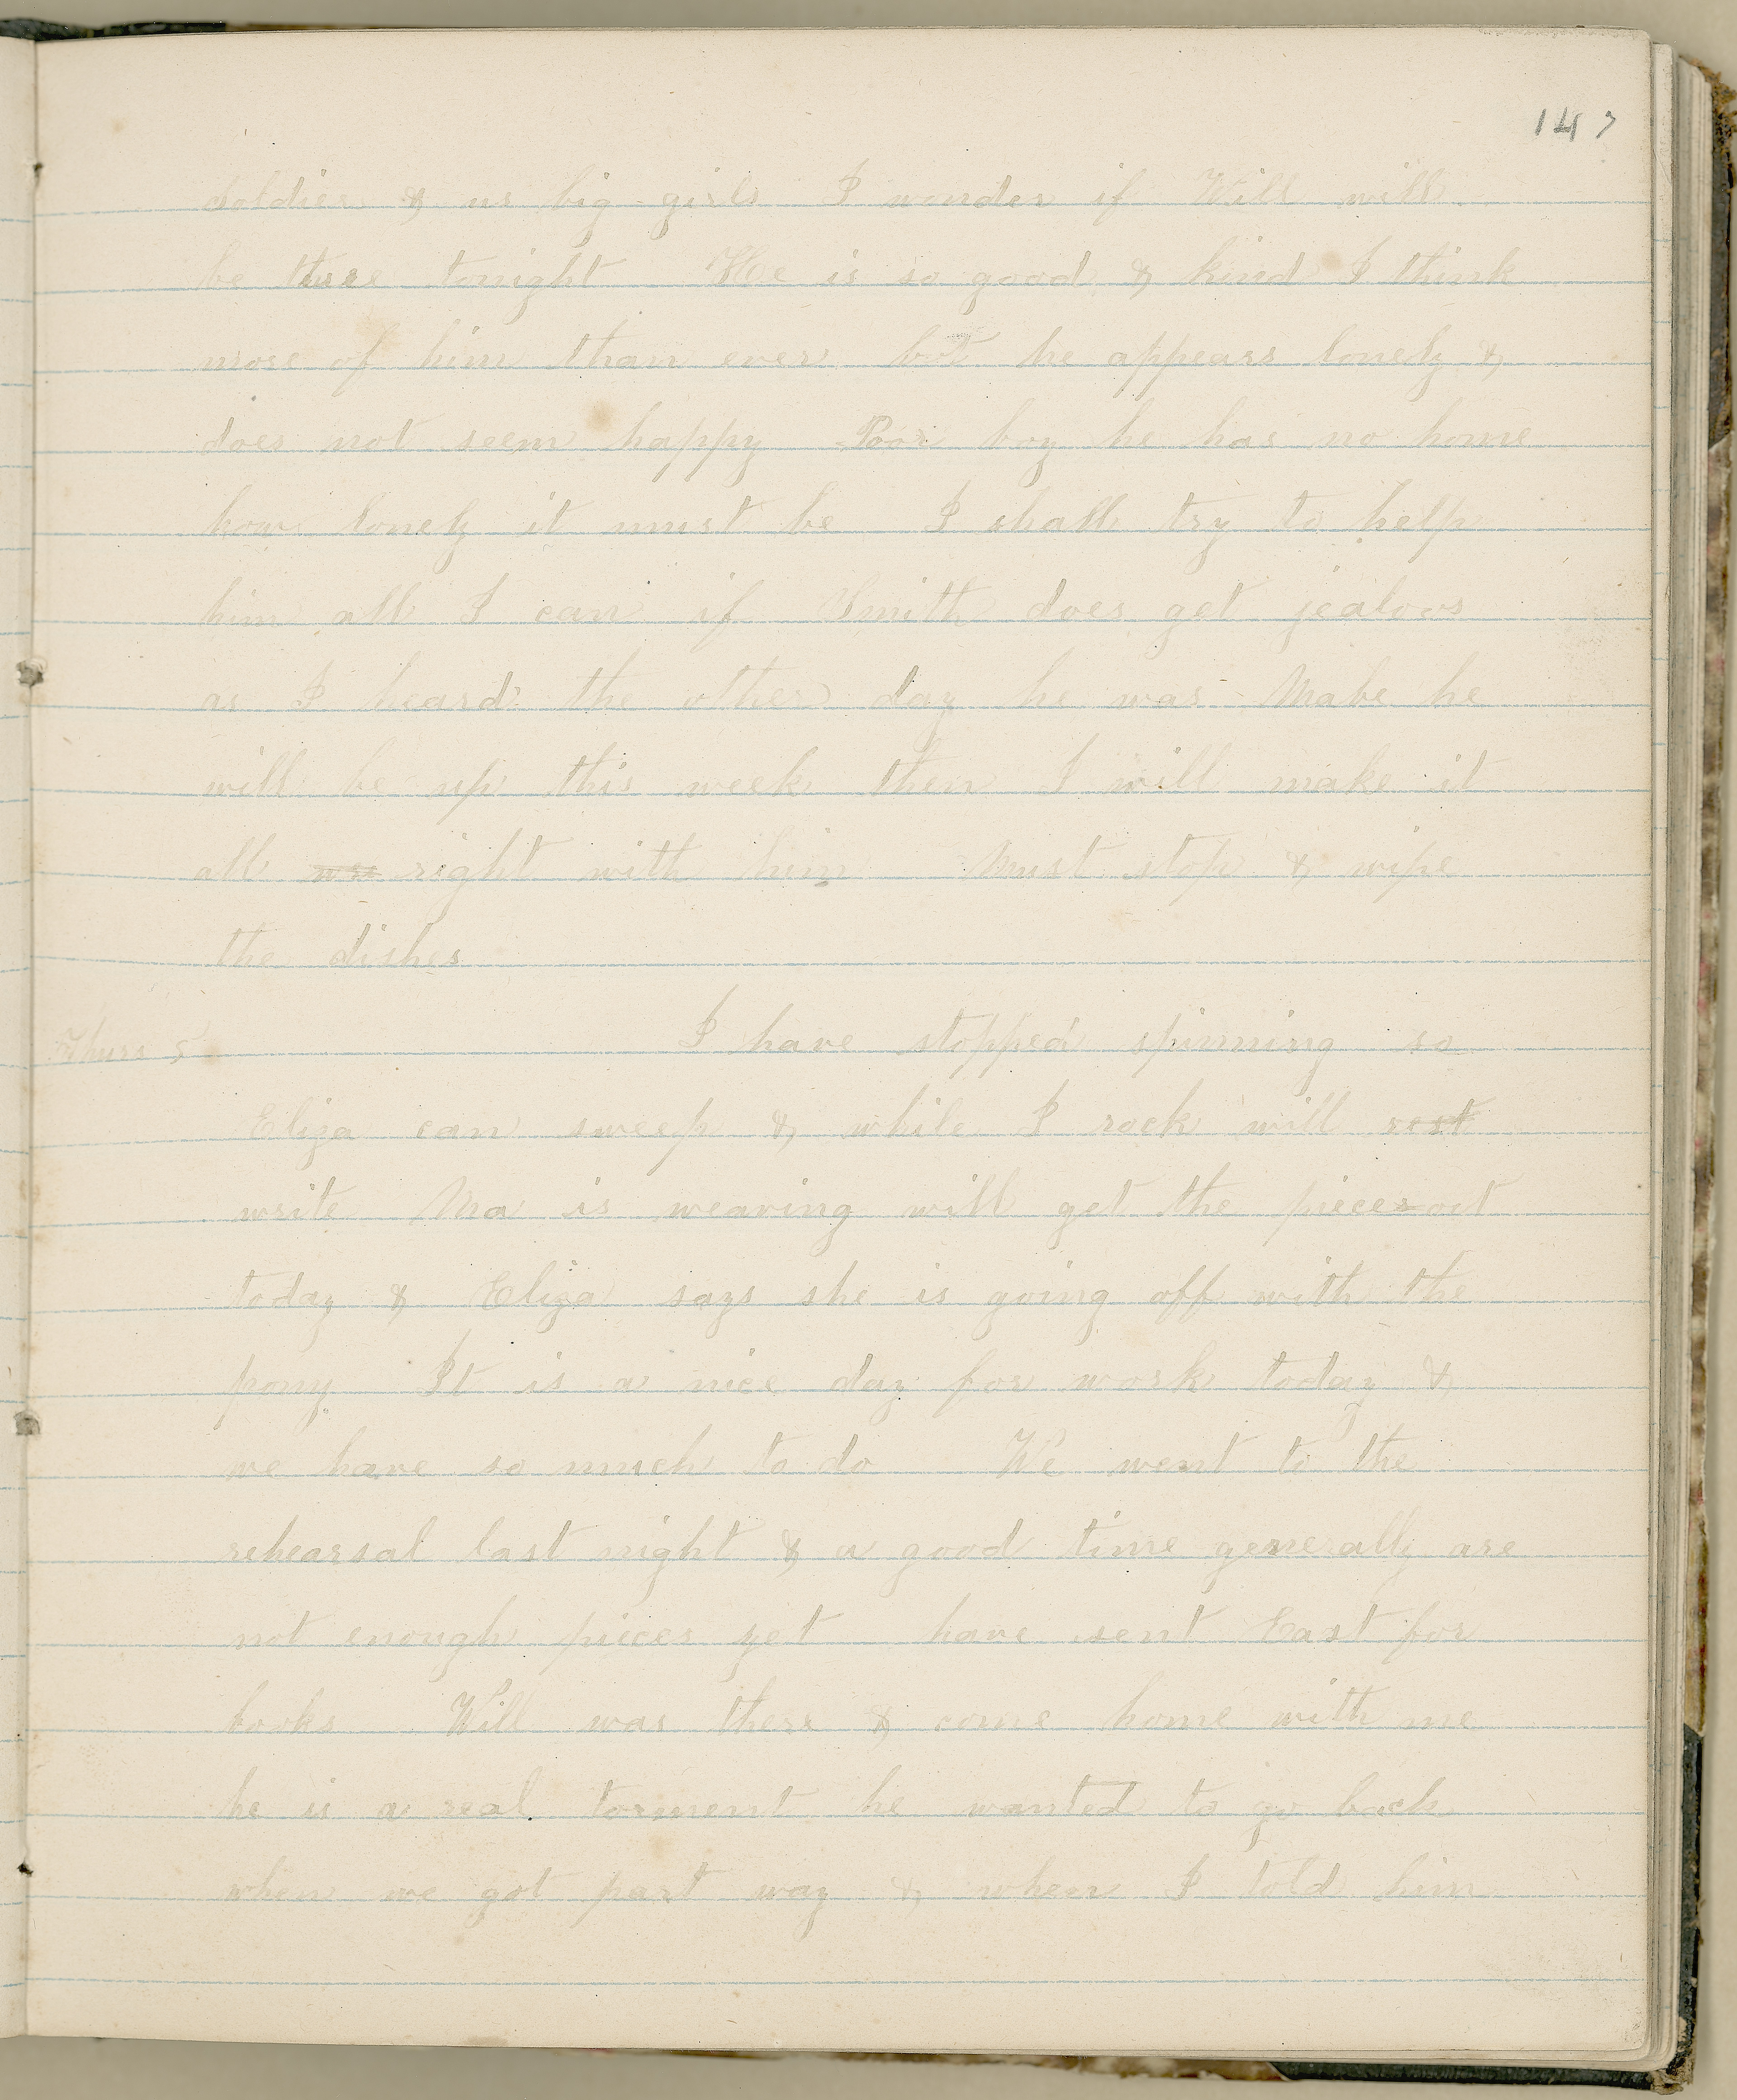 147
soldier & us big girls I wonder if Will will
be there tonight He is so good & kind I think
more of him than ever but he appears lonely &
does not seem happy Poor boy he has no home
how lonely it must be I shall try to help
him all I can if Smith does get jealous
as I heard the other day he was Mabe he
will be up this week then I will make it
all right with him Must stop & wipe
the dishes
Thurs 5 I have stopped spinning so
Eliza can sweep & while I rock will rest
write Ma is weaving will get the piece out
today & Eliza says she is going off with the
pony It is a nice day for work today &
we have so much to do We went to the
rehearsal last night & a good time generally are
not enough pieces yet have sent East for
books Will was there & come home with me
he is a real torment he wanted to go back
when we got part way & when I told him